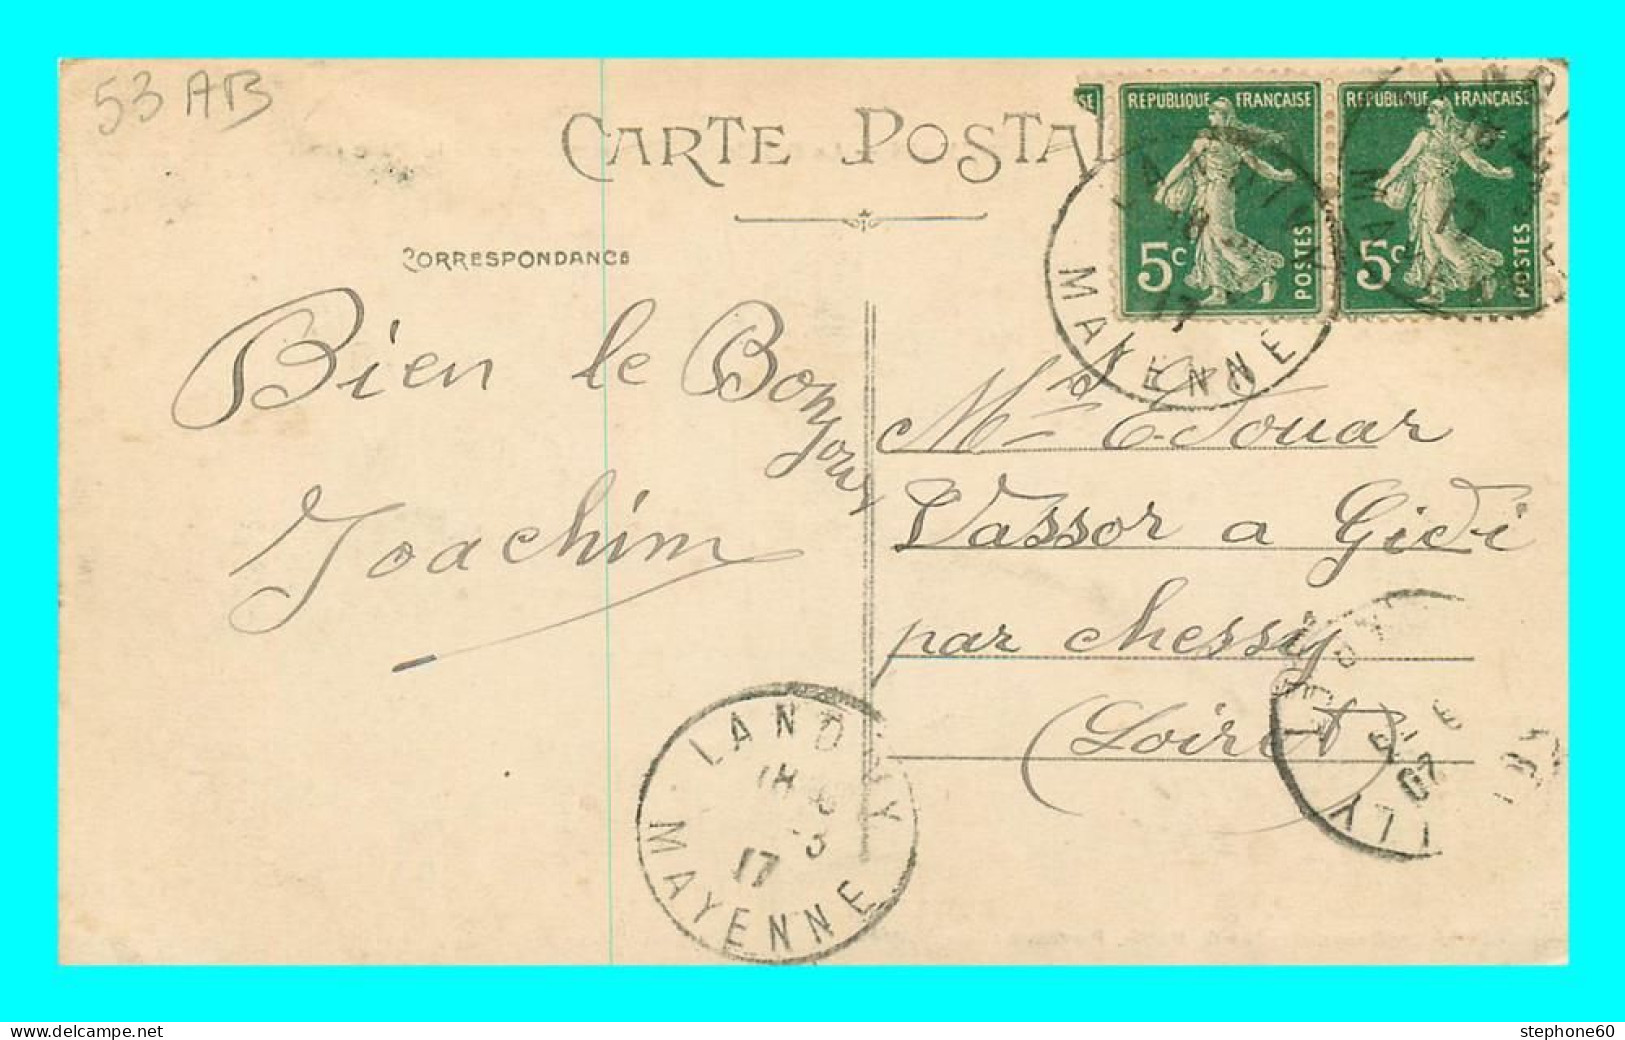 53 AB
CARTE POSTAL
CORRESPONDANCE
RÉPUBLIQUE FRANÇAISE
5c
POSTES
RÉPUBLIQUE FRANÇAISE
5c
POSTES
MAYENNE
Bien le Bonjour
Joachim
Md Edouar
Vassor a Gidi
par chessy
(Loiret)
LANDIVY
18
17 3
MAYENNE
delcampe.net
stephone60